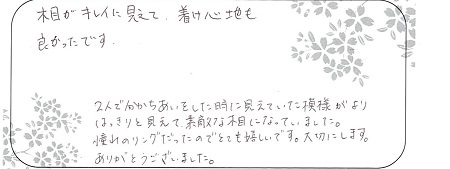 木目がキレイに見えて、着け心地も
良かったです.
2人で分かちあいをした時に見えていた模様がより
はっきりと見えて素敵な木目になっていました。
憧れのリングだったのでとても嬉しいです。大切にします。
ありがとうございました。